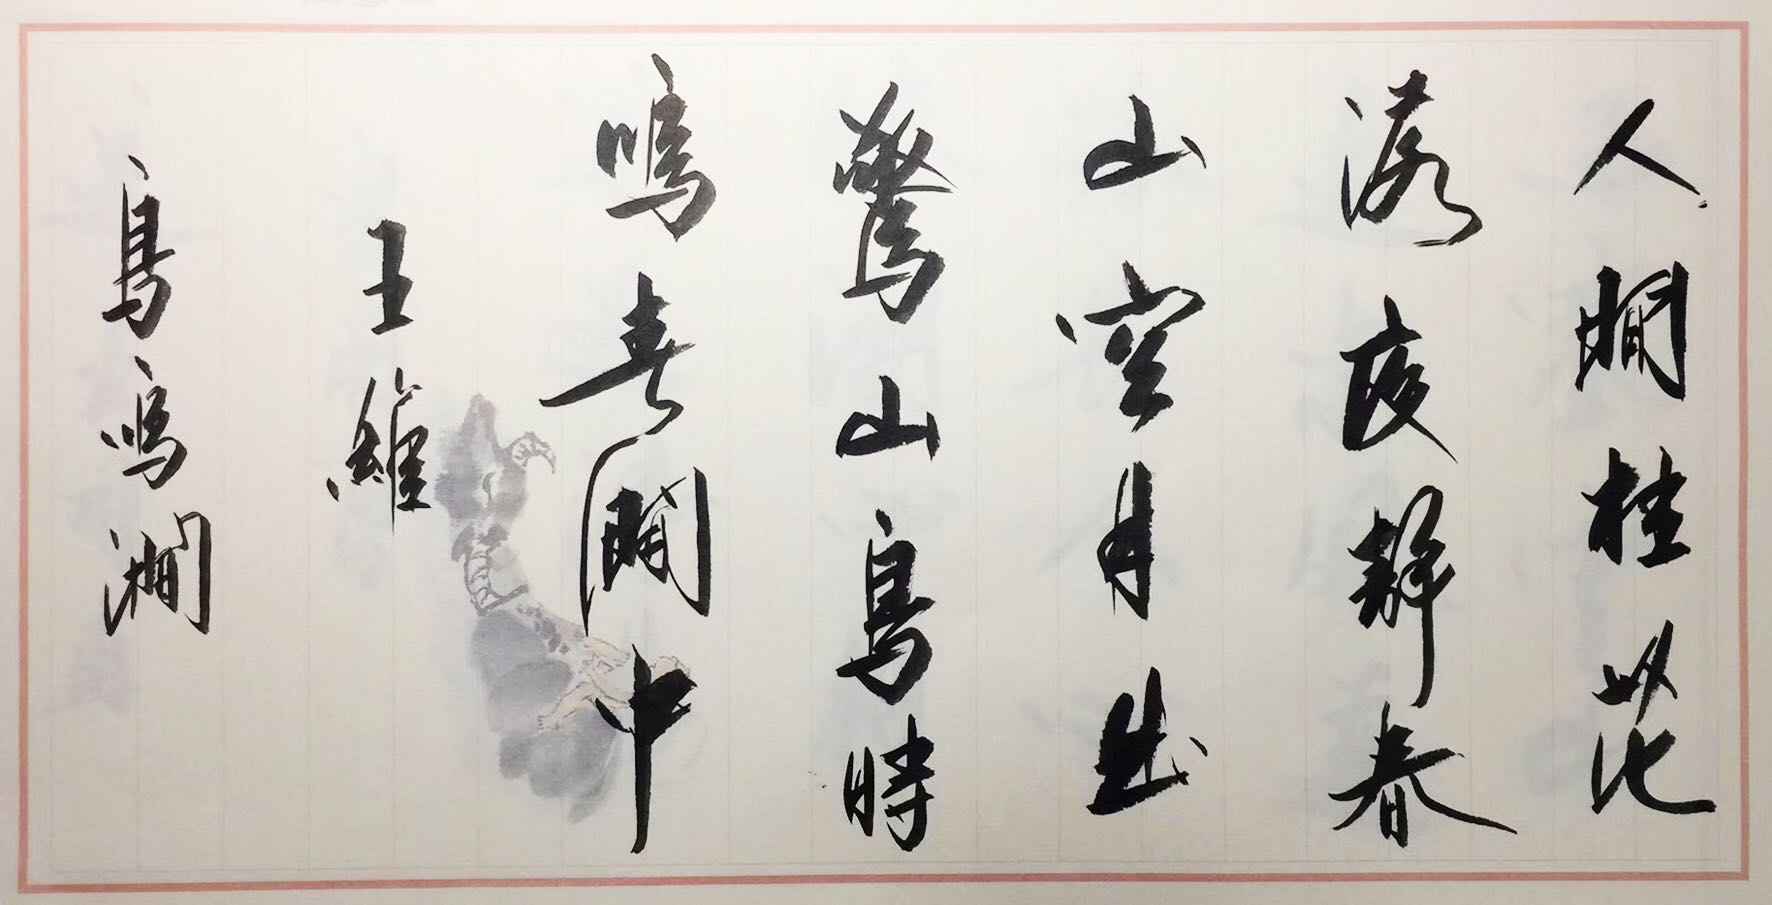 人閒桂花
落夜靜春
山空月出
驚山鳥時
鳴春澗中
王維
鳥鳴澗